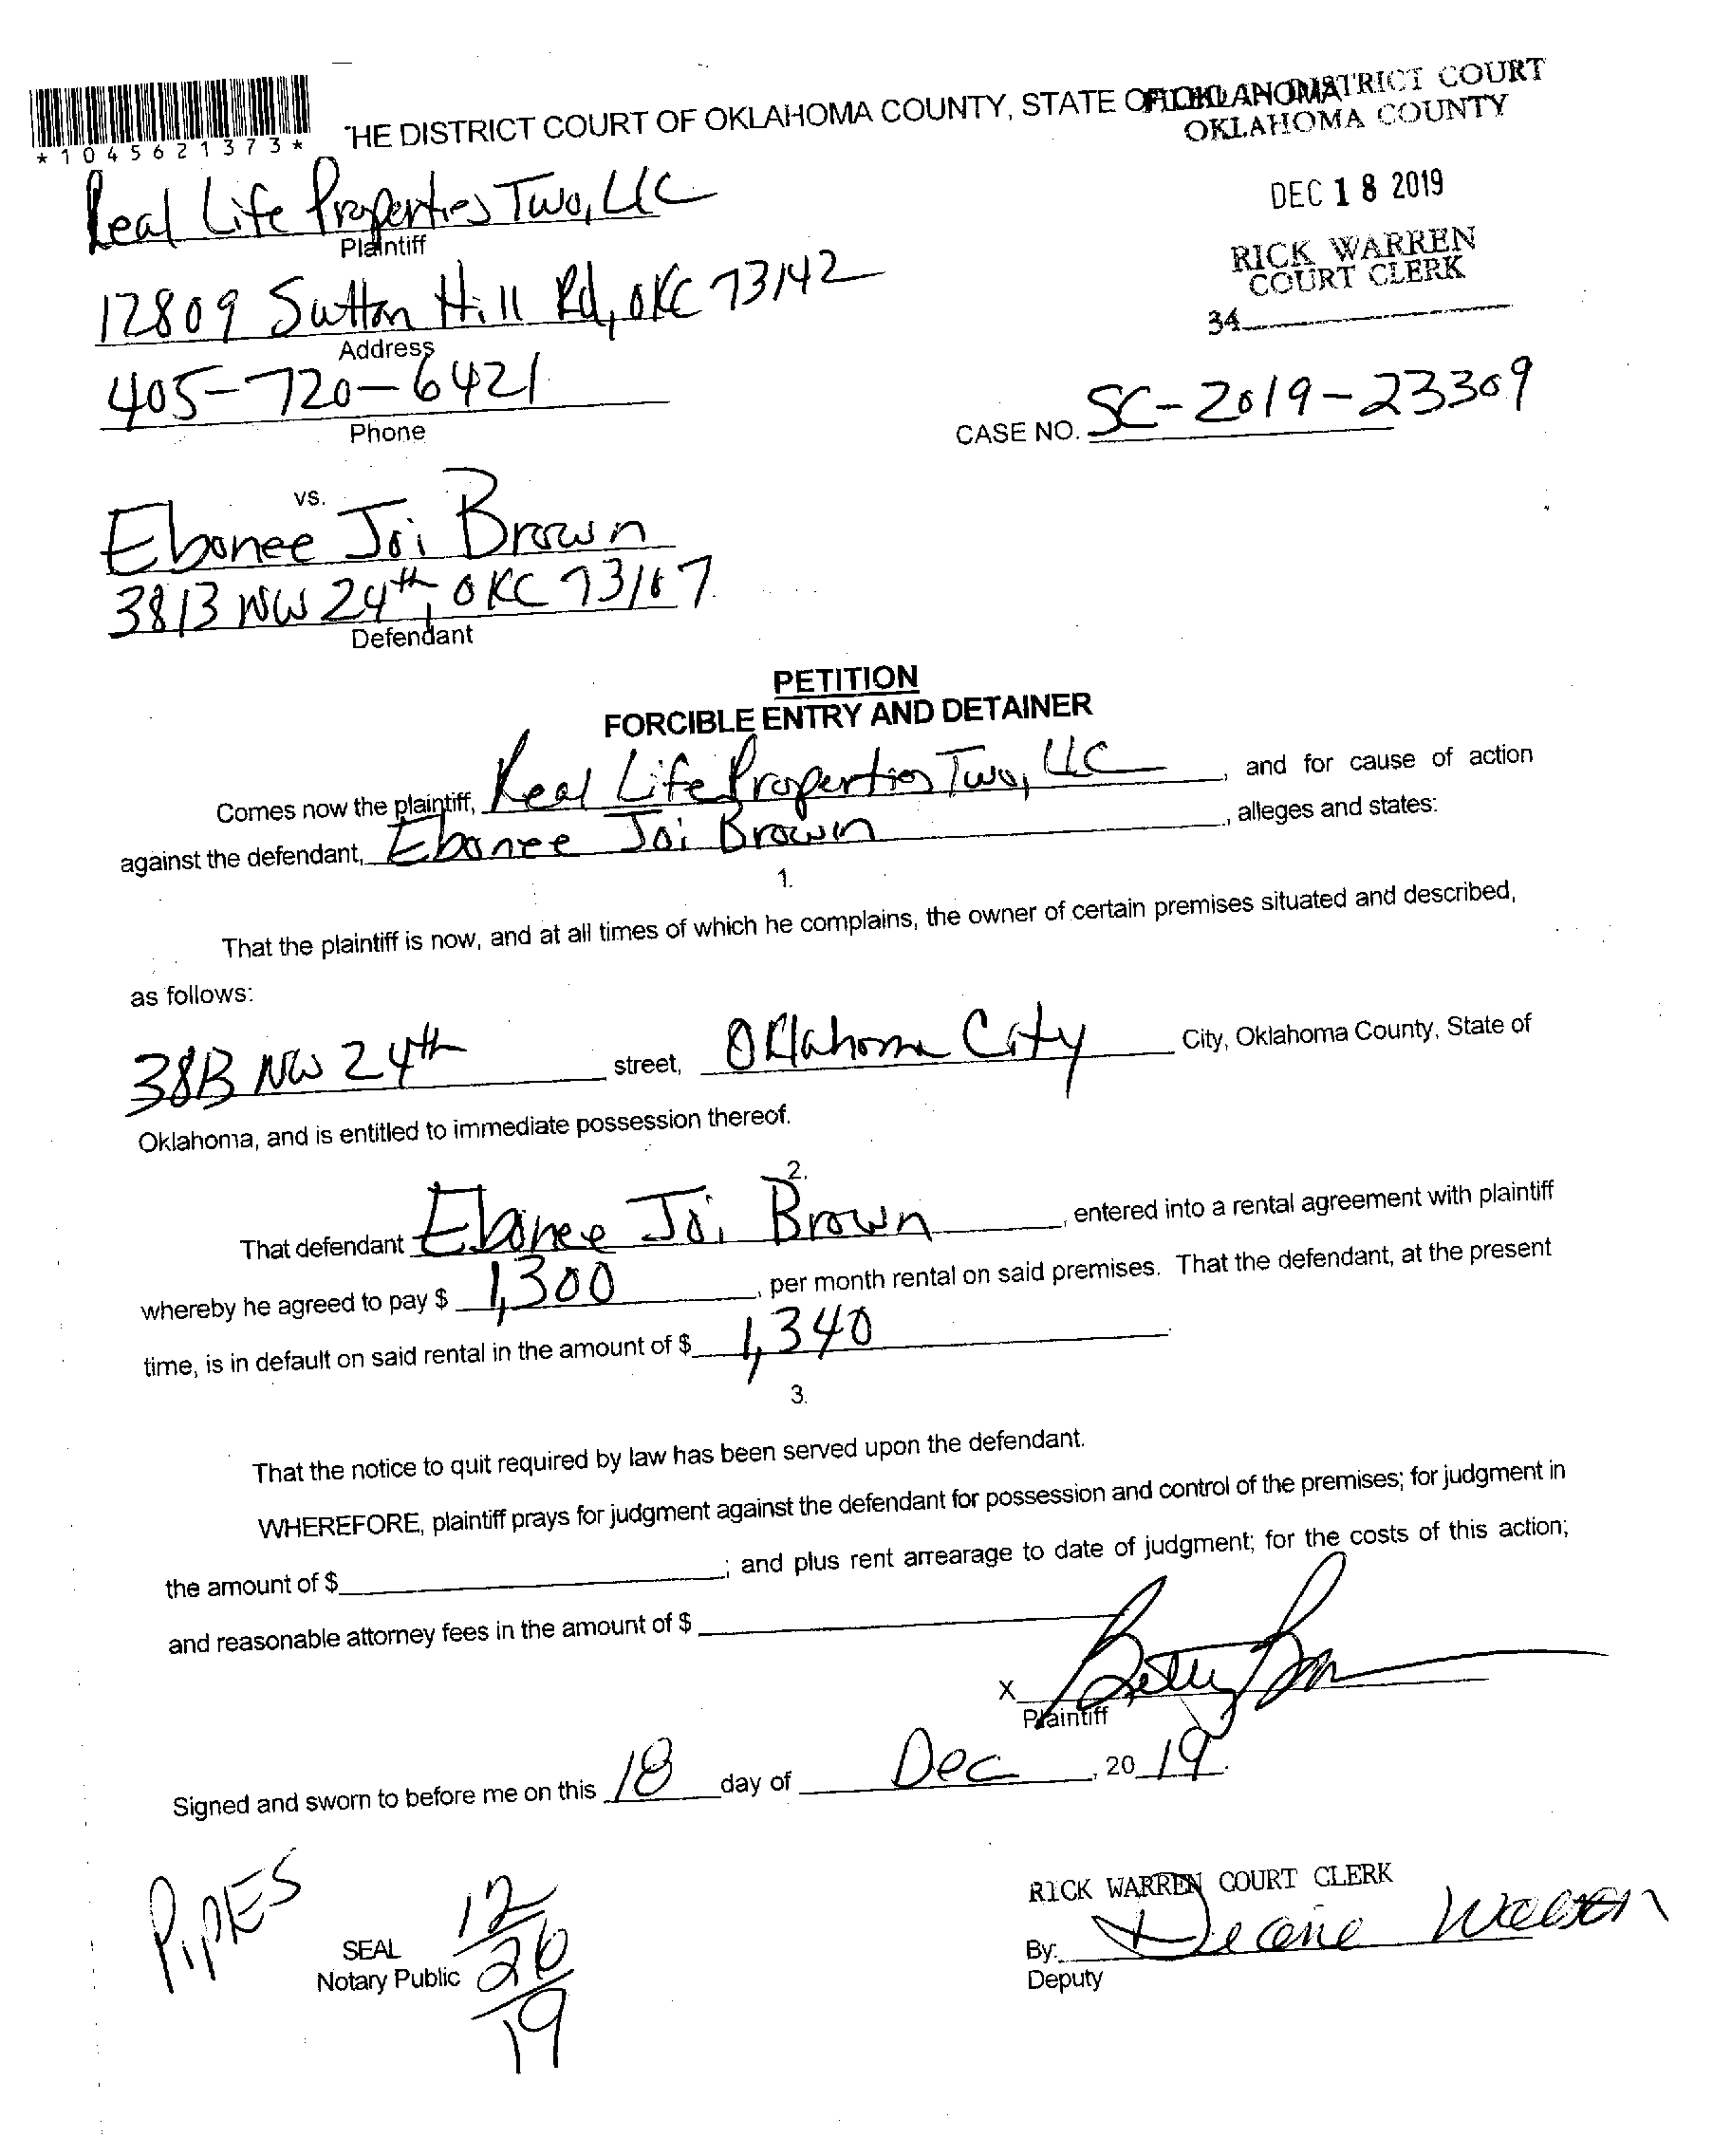 *1045621373*
THE DISTRICT COURT OF OKLAHOMA COUNTY, STATE OF OKLAHOMA
FILED IN DISTRICT COURT
OKLAHOMA COUNTY
DEC 18 2019
RICK WARREN
COURT CLERK
34
Real Life Properties Two, LLC
Plaintiff
12809 Sutton Hill Rd, OKC 73142
Address
405-720-6421
Phone
CASE NO. SC-2019-23309
vs.
Ebonee Joi Brown
3813 NW 24th, OKC 73107
Defendant
PETITION
FORCIBLE ENTRY AND DETAINER
Comes now the plaintiff, Real Life Properties Two, LLC, and for cause of action
against the defendant, Ebonee Joi Brown, alleges and states:
1.
That the plaintiff is now, and at all times of which he complains, the owner of certain premises situated and described,
as follows:
3813 NW 24th street, Oklahoma City City, Oklahoma County, State of
Oklahoma, and is entitled to immediate possession thereof.
2.
That defendant Ebonee Joi Brown, entered into a rental agreement with plaintiff
whereby he agreed to pay $ 1,300, per month rental on said premises. That the defendant, at the present
time, is in default on said rental in the amount of $ 1,340.
3.
That the notice to quit required by law has been served upon the defendant.
WHEREFORE, plaintiff prays for judgment against the defendant for possession and control of the premises; for judgment in
the amount of $ ; and plus rent arrearage to date of judgment; for the costs of this action;
and reasonable attorney fees in the amount of $
X Betty
Plaintiff
Signed and sworn to before me on this 18 day of Dec, 2019.
PIPES
12/26/19
SEAL
Notary Public
RICK WARREN COURT CLERK
By:
Deputy